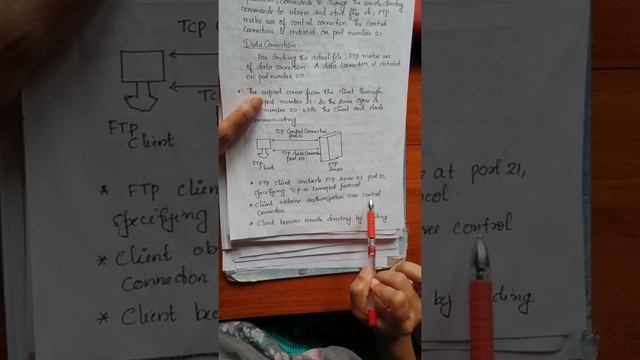 commands to change the remote directory
commands to retrieve and store files etc, FTP
make use of control connection. The control
connection is initiated on port number 21.
Data Connection:
For sending the actual file, FTP make use
of data connection. A data connection is initiated
on port number 20.
* The request comes from the client through
port number 21. So the server opens a
number 20 with the client and starts
communicating
TCP Control Connection
port 21
TCP data Connection
port 20
FTP
Client
FTP
Server
* FTP client contacts FTP server at port 21,
specifying TCP as transport protocol
* Client obtains authorization over control
connection
* Client browses remote directory by sending
TCP
FTP
Client
* FTP clien
specifying
* Client ob
Connection
* Client
at port 21,
control
by